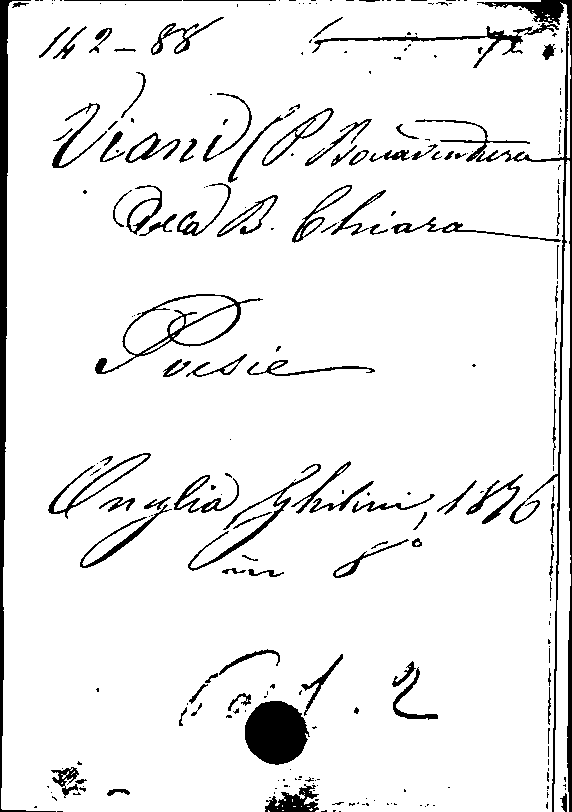 142-88
Viani (P. Bonaventura
della B. Chiara
Poesie
Oneglia, Ghilini, 1876
in 8°
2